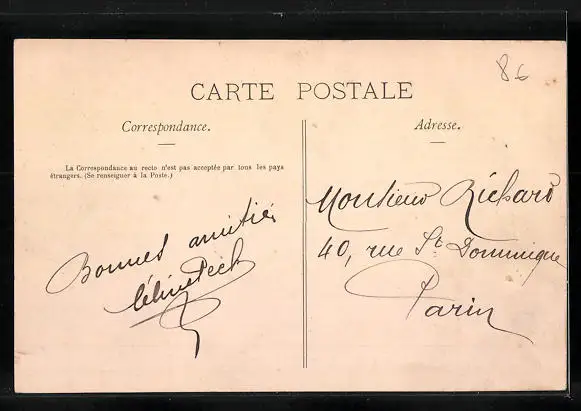 86
CARTE POSTALE
Correspondance.
La Correspondance au recto n'est pas acceptée par tous les pays
étrangers. (Se renseigner à la Poste.)
Bonnes amitiés
Céline Pech
Adresse.
Monsieur Richard
40, rue St. Dominique
Paris